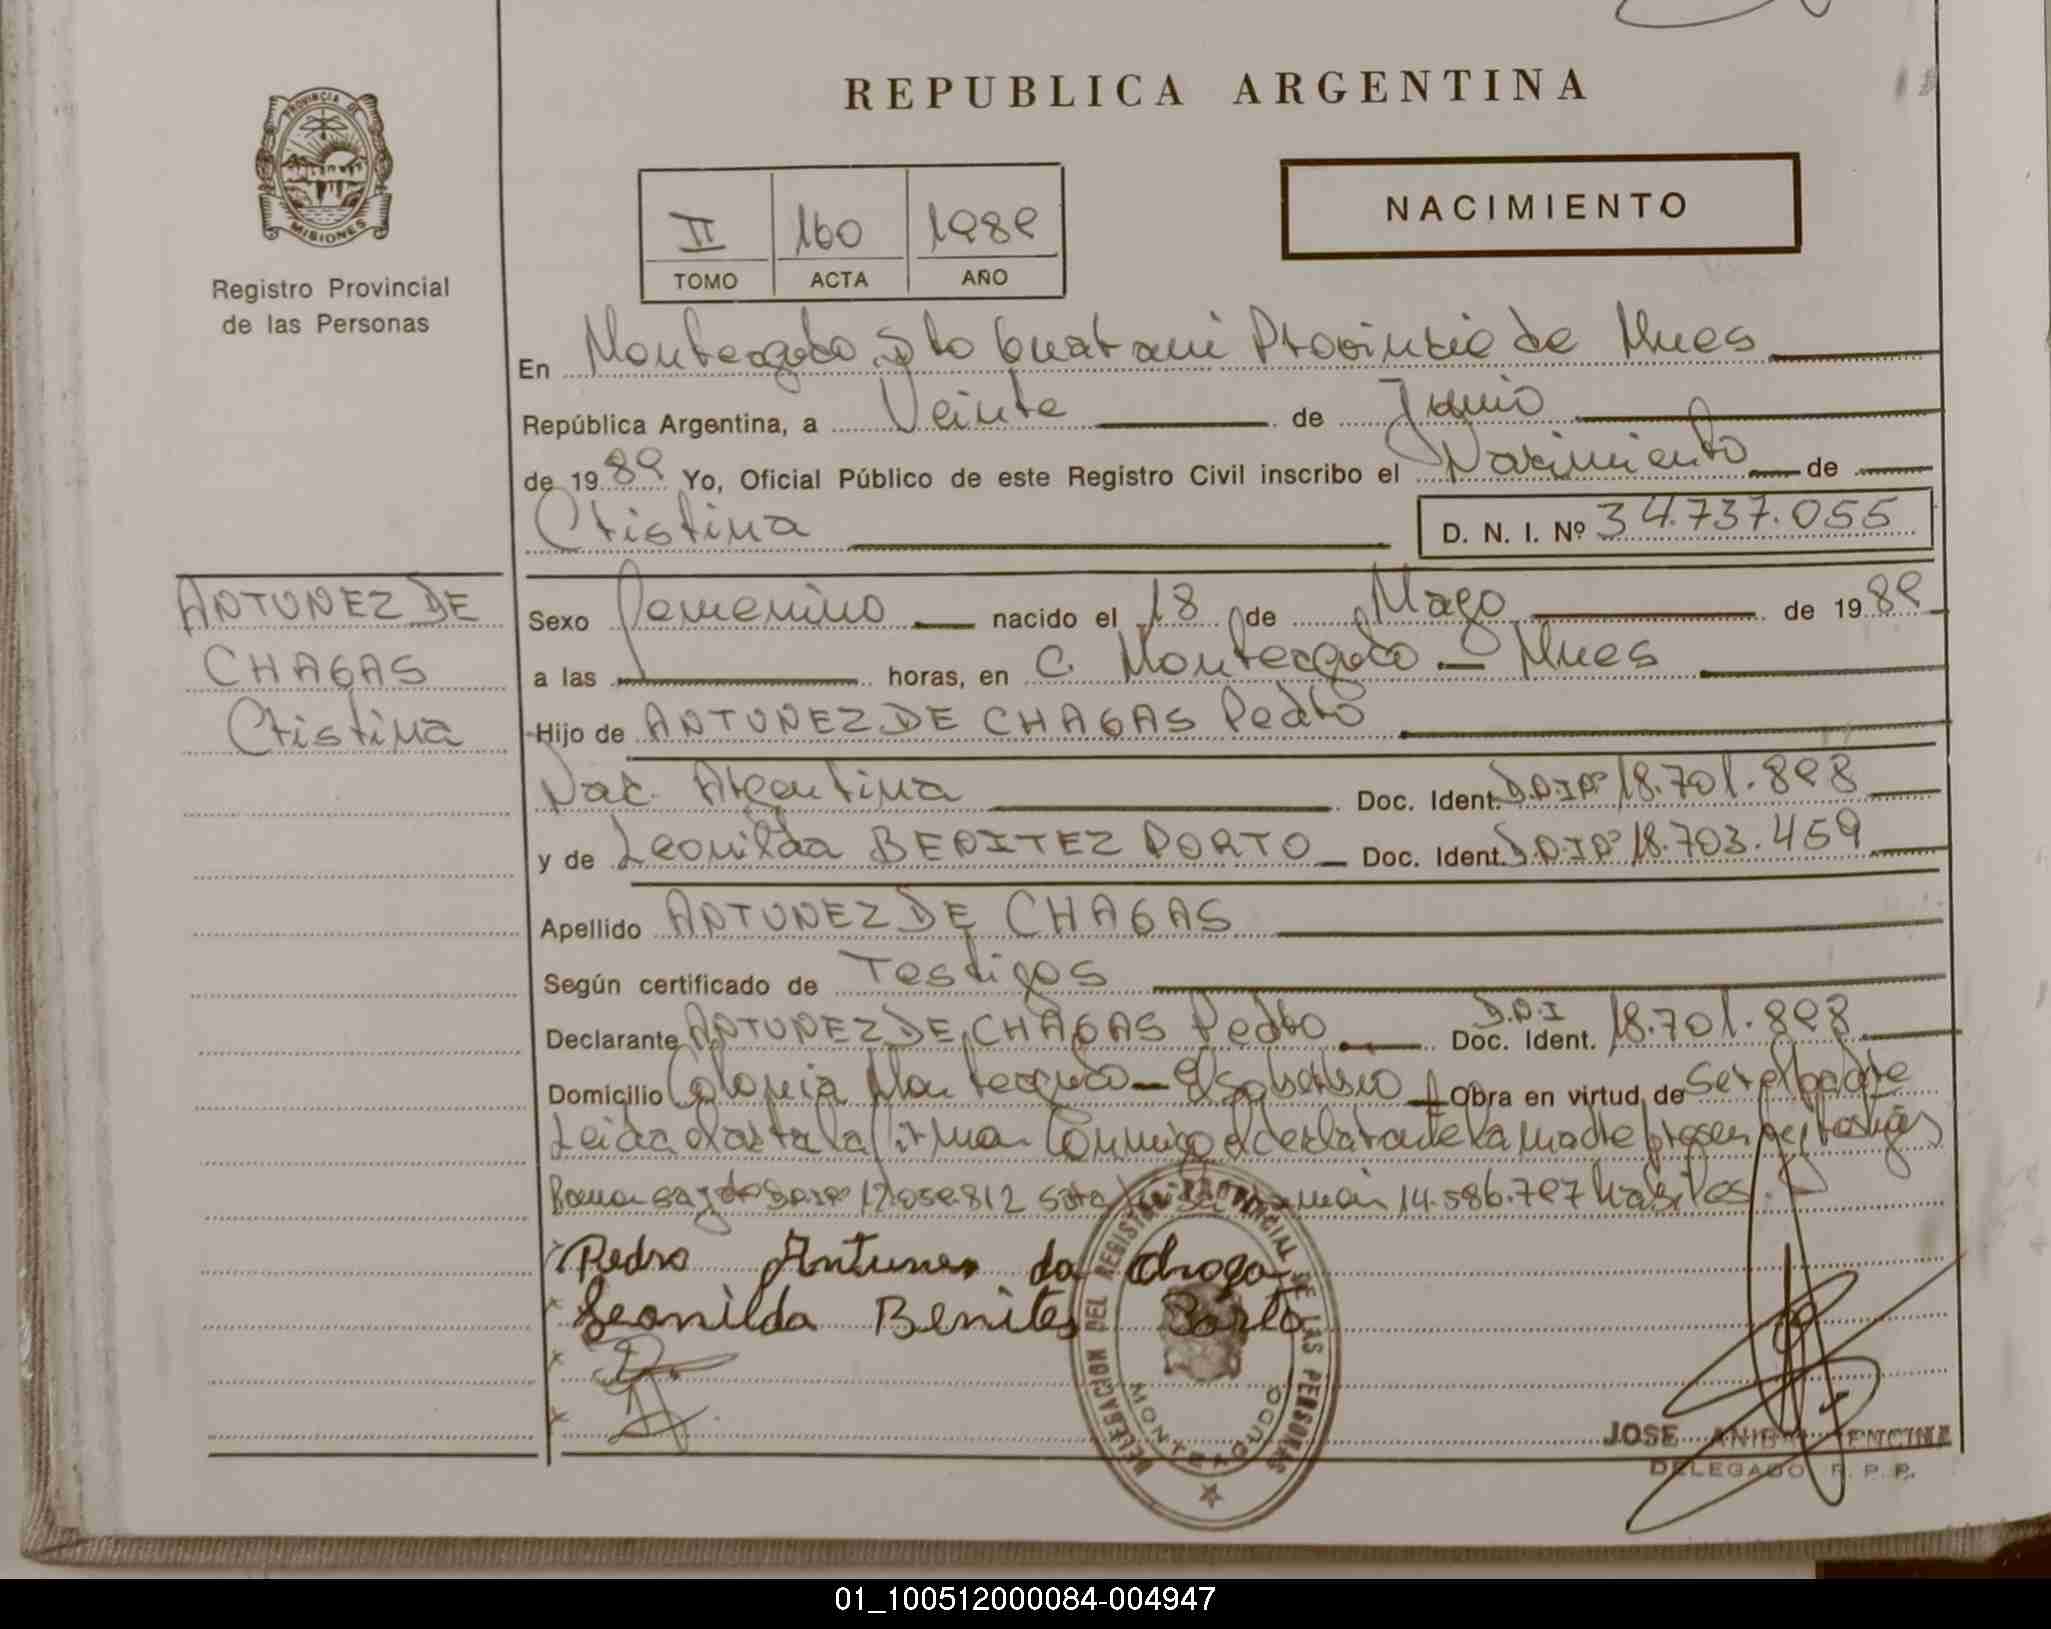 REPUBLICA ARGENTINA
PROVINCIA DE
MISIONES
Registro Provincial
de las Personas
II 160 1989
TOMO ACTA AÑO
NACIMIENTO
En Monteagudo Dto Guarani Provincia de Mnes
República Argentina, a Veinte de Junio
de 1989 Yo, Oficial Público de este Registro Civil inscribo el Nacimiento de
Cristina D. N. I. Nº 34.737.055
ANTUNEZ DE
CHAGAS
Cristina
Sexo femenino nacido el 18 de Mayo de 1989
a las horas, en C. Monteagudo - Mnes
Hijo de ANTUNEZ DE CHAGAS Pedro
Nac. Argentina Doc. Ident. D.N.I Nº 18.701.898
y de Leonilda BENITEZ PORTO Doc. Ident. D.N.I Nº 18.703.459
Apellido ANTUNEZ DE CHAGAS
Según certificado de Testigos
Declarante ANTUNEZ DE CHAGAS Pedro Doc. Ident. D.N.I 18.701.898
Domicilio Colonia Monteagudo - El soberbio Obra en virtud de ser el padre
Leida el acta la firman conmigo el declarante la madre presen
D.N.I Nº 17.059.812 14.586.797 habiles.
Pedro Antunes da Chaga
Leonilda Benites Porto
DELEGACION DEL REGISTRO PROVINCIAL DE LAS PERSONAS
MONTEAGUDO
JOSE
DELEGADO R. P. P.
01_100512000084-004947